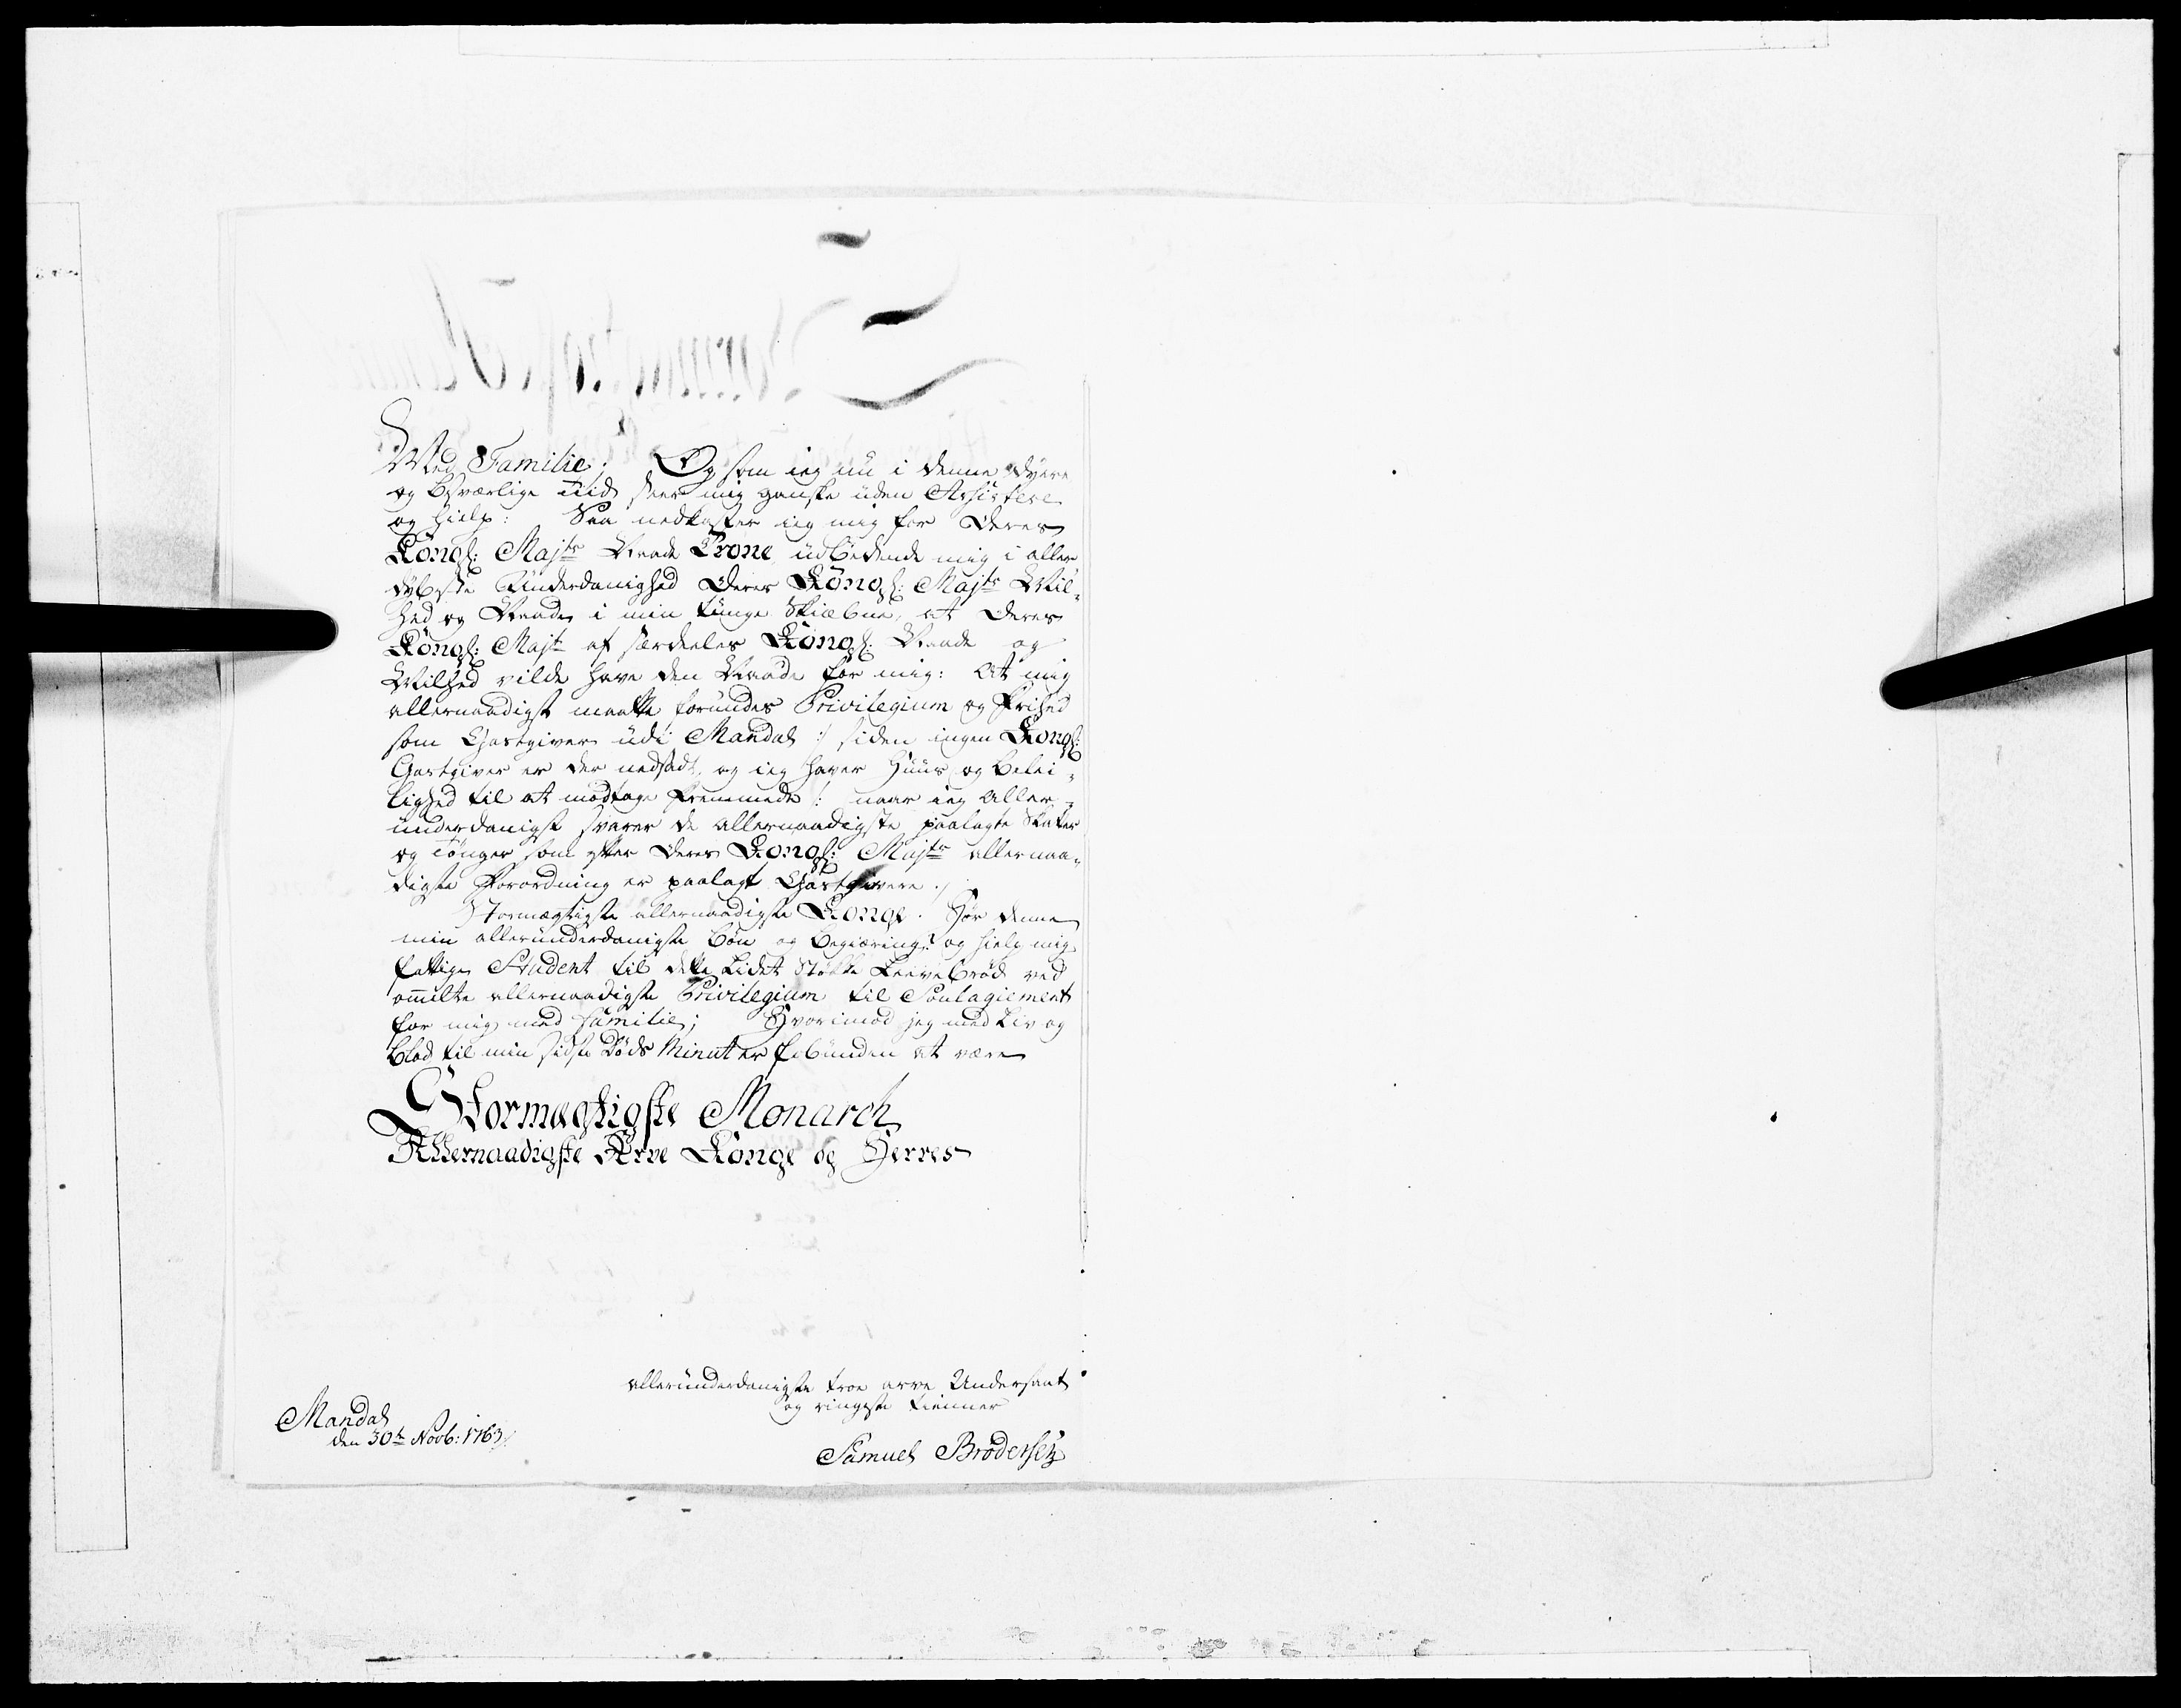 Med Familie; Og som ieg nu i denne dyere
og besværlige tiid seer mig ganske uden Assistere
og hielp: Saa nedkaster ieg mig for Deres
Kongl: Majts Naade Trone udbedende mig i aller
dybeste Underdanighed Deres Kongl: Majts Mil-
hed og Naade i min tunge Skiæbne, at Deres
Kongl: Majt af særdeeles Kongl: Naade og
Milhed vilde have den Naade for mig: At mig
allernaadigst maatte forundes Privilegium og Frihed
som Gastgiver udi Mandal :/ siden ingen Kongl:
Gastgiver er der nedsadt, og ieg haver Huus og belei-
lighed til at modtage fremmede /: naar ieg Aller-
underdanigst svarer de allernaadigste paalagte Skatter
og tønger som efter Deres Kongl: Majts allernaa-
digste Forordning er paalagt Gastgivere :/
Stormægtigste allernaadigste Konge. Hør denne
min allerunderdanigste bøn og begiæring: og hielp mig
fattige Student til dette lidet Støkke Leevebrød ved
ommelte allernaadigste Privilegium til Soulagiement
for mig med familie; Hvorimod jeg med Liv og
blod til min sidste Døds Minut er forbunden at være
Stormægtigste Monarch
Allernaadigste Arve Konge og Herres
allerunderdanigste troe arve Undersaat
og ringeste tienner
Mandal
den 30te Novb: 1763.
Samuel Brodersen